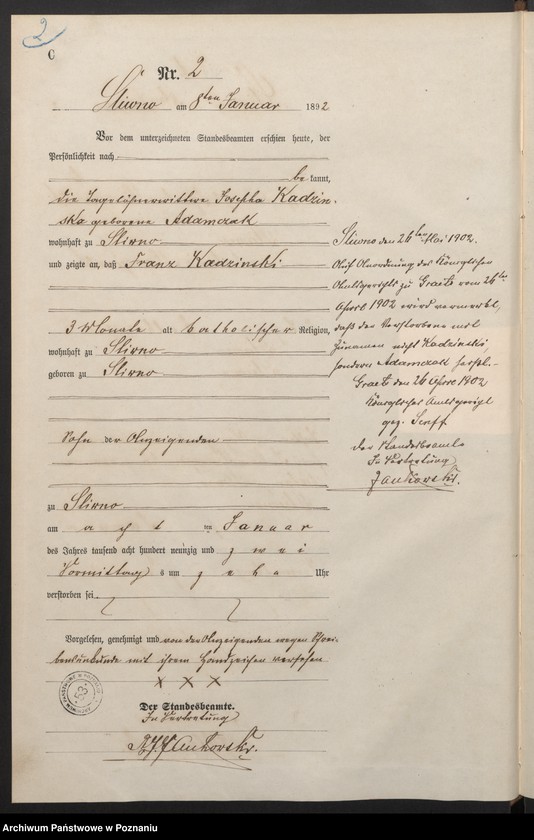 2
C
Nr. 2
Sliwno am 8ten Januar 1892
Vor dem unterzeichneten Standesbeamten erschien heute, der
Persönlichkeit nach
be kannt,
die Tagelöhnerwittwe Josepha Kadzin-
ska geborene Adamczak
wohnhaft zu Sliwno
und zeigte an, daß Franz Kadzinski
3 Monate alt katholischer Religion,
wohnhaft zu Sliwno
geboren zu Sliwno
Sohn der Anzeigenden
zu Sliwno
am acht ten Januar
des Jahres tausend acht hundert neunzig und zwei
Vormittags um zehn Uhr
verstorben sei
Vorgelesen, genehmigt und von der Anzeigenden wegen Schrei-
bensunkunde mit ihrem Handzeichen versehen
x x x
Der Standesbeamte.
In Vertretung
Jankowski.
Sliwno den 26ten Mai 1902.
Auf Anordnung des Königlichen
Amtsgerichts zu Graetz vom 26ten
April 1902 wird vermerkt,
daß der Verstorbene mit
Zunamen nicht Kadzinski
sondern Adamczak heißt.-
Graetz den 26 April 1902
Königliches Amtsgericht
gez.
Der Standesbeamte
In Vertretung
Jankowski.
Archiwum Państwowe w Poznaniu